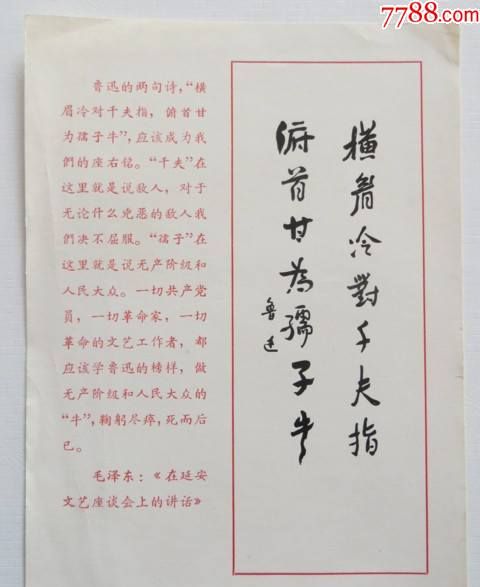 7788.com
鲁迅的两句诗,“横
眉冷对千夫指,俯首甘
为孺子牛”,应该成为我
們的座右铭。“千夫”在
这里就是说敌人,对于
无论什么兇恶的敌人我
們决不屈服。“孺子”在
这里就是说无产阶级和
人民大众。一切共产党
員,一切革命家,一切
革命的文艺工作者,都
应该学鲁迅的榜样,做
无产阶级和人民大众的
“牛”,鞠躬尽瘁,死而后
已。
毛泽东:《在延安
文艺座谈会上的讲话》
橫眉冷對千夫指
俯首甘為孺子牛
魯迅